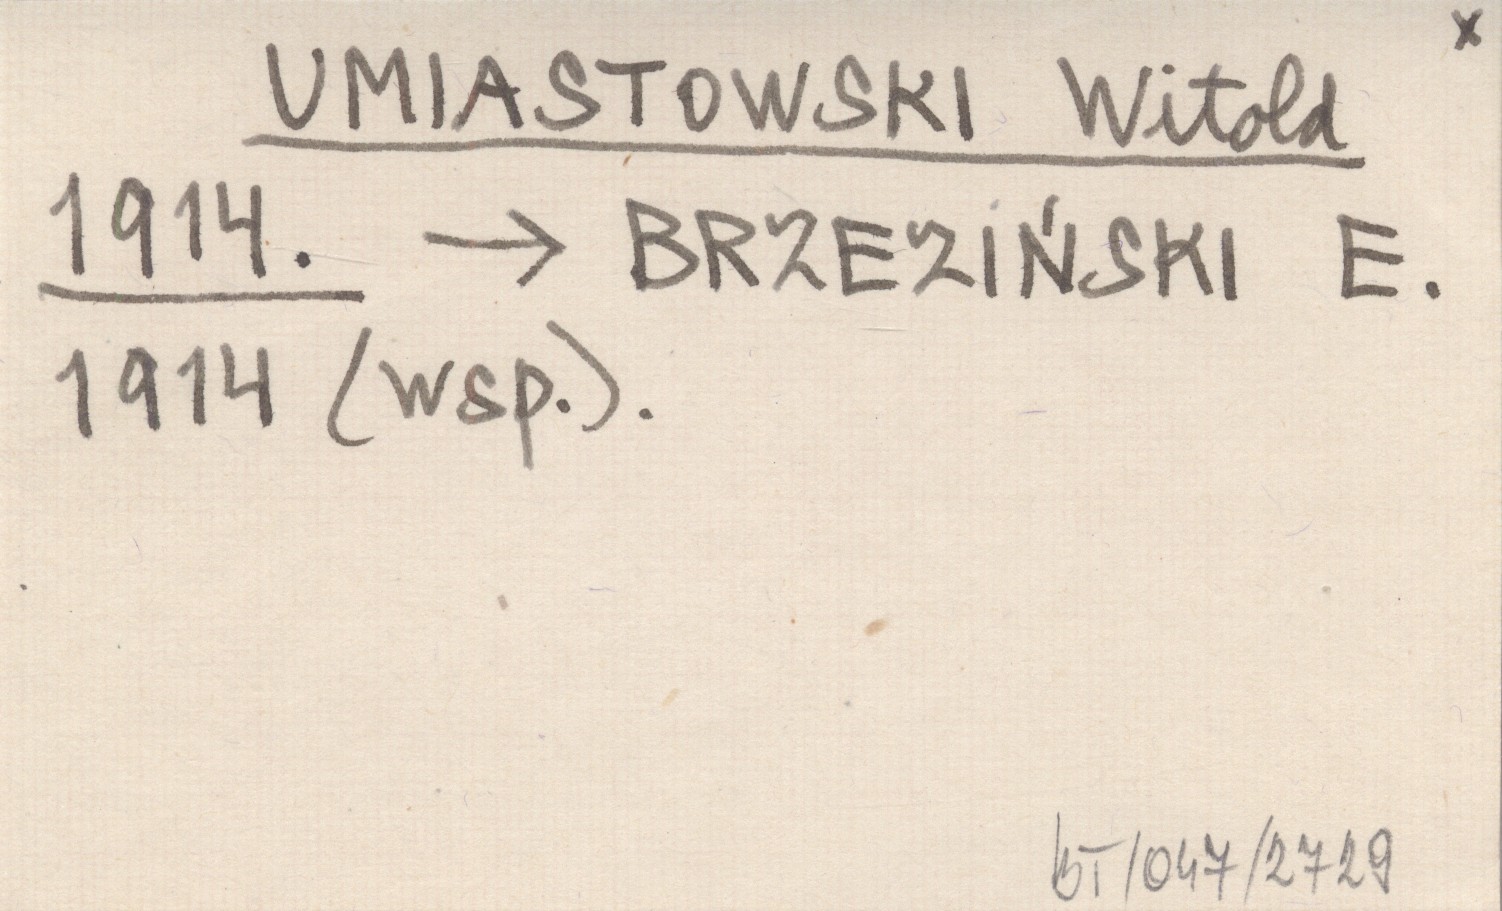 x
UMIASTOWSKI Witold
1914. → BRZEZIŃSKI E.
1914 (wsp.).
bT/047/2729